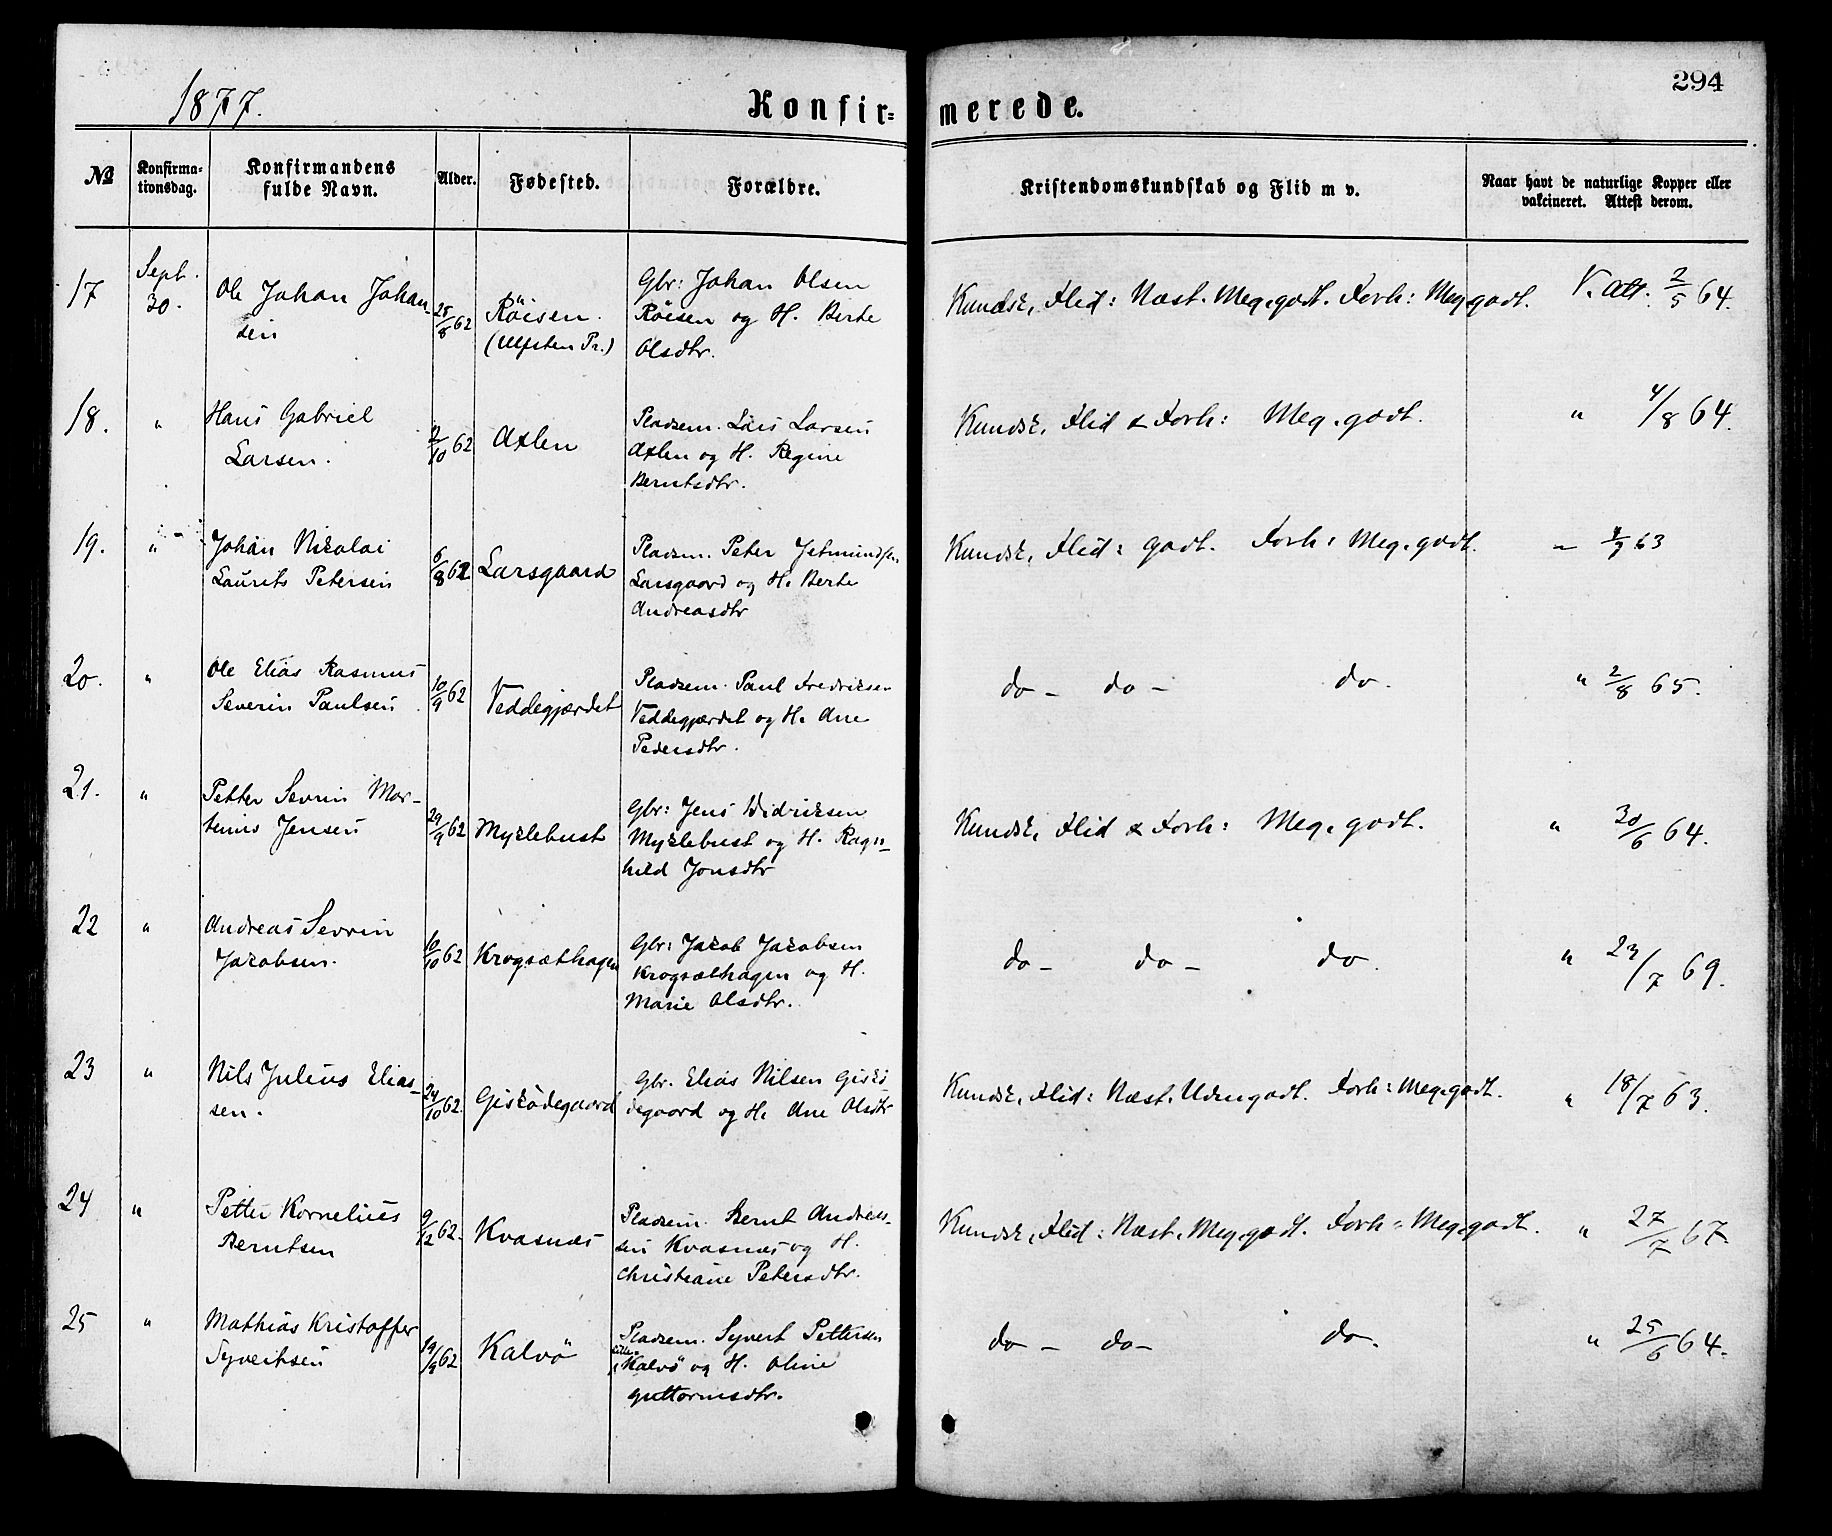 294
1877.
Konfir-merede.
№
Konfirma-
tionsdag.
Konfirmandens
fulde Navn.
Alder.
Fødested.
Forældre.
Kristendomskundskab og Flid m v.
Naar havt de naturlige Kopper eller
vakcineret. Attest derom.
17 Sept. 30. Ole Johan Johan-
sen
28/8 62
Röisen.
(Ulfsten Pr.)
Gbr: Johan Olsen
Röisen og H. Berte
Olsdtr.
Kundsk, Flid: Næst. Meg. godt. Forh: Meg. godt.
V. Att. 2/5 64.
18. " Hans Gabriel
Larsen.
2/10 62
Axlen
Pladsm. Lars Larsen
Axlen og H. Regine
Berntsdtr.
Kundsk, Flid & Forh: Meg. godt.
" 4/8 64.
19. " Johan Nikolai
Laurits Petersen
6/8 62
Larsgaard
Pladsm. Peter Jetmundsen
Larsgaard og H. Berte
Andreasdtr
Kundsk, Flid: godt. Forh: Meg. godt.
63
20. " Ole Elias Rasmus
Severin Paulsen
10/9 62
Veddegjærdet
Pladsm. Paul Fredriksen
Veddegjærdet og H. Ane
Pedersdtr.
do - do - do.
" 2/8 65.
21. " Petter Sevrin Mar-
tinus Jensen
29/9 62
Myklebust
Gbr: Jens Didriksen
Myklebust og H. Ragn-
hild Jonsdtr
Kundsk, Flid & Forh: Meg. godt.
" 30/6 64.
22 " Andreas Sevrin
Jakobsen.
10/10 62
Krogsæthagen
Gbr: Jakob Jakobsen
Krogsæthagen og H.
Marie Olsdtr.
do - do - do.
" 23/7 69.
23 " Nils Julius Elias-
sen.
24/10 62.
Gisködegaard
Gbr. Elias Nilsen Giskö
degaard og H. Ane Olsdtr
Kundsk, Flid: Næst. Udm. godt. Forh: Meg. godt.
" 18/7 63.
24 " Petter Kornelius
Berntsen
9/12 62.
Kvasnæs
Pladsm. Bernt Andreas-
sen Kvasnæs og H.
Christiane Petersdtr.
Kundsk, Flid: Næst. Meg. godt. Forh: Meg. godt.
" 27/7 67.
25 " Mathias Kristoffer
Syvertsen
19/9 62
Kalvö
Pladsm. Syvert Pettersen
Kalvö og H. Oline
Guttormsdtr.
do - do - do.
" 25/6 64.